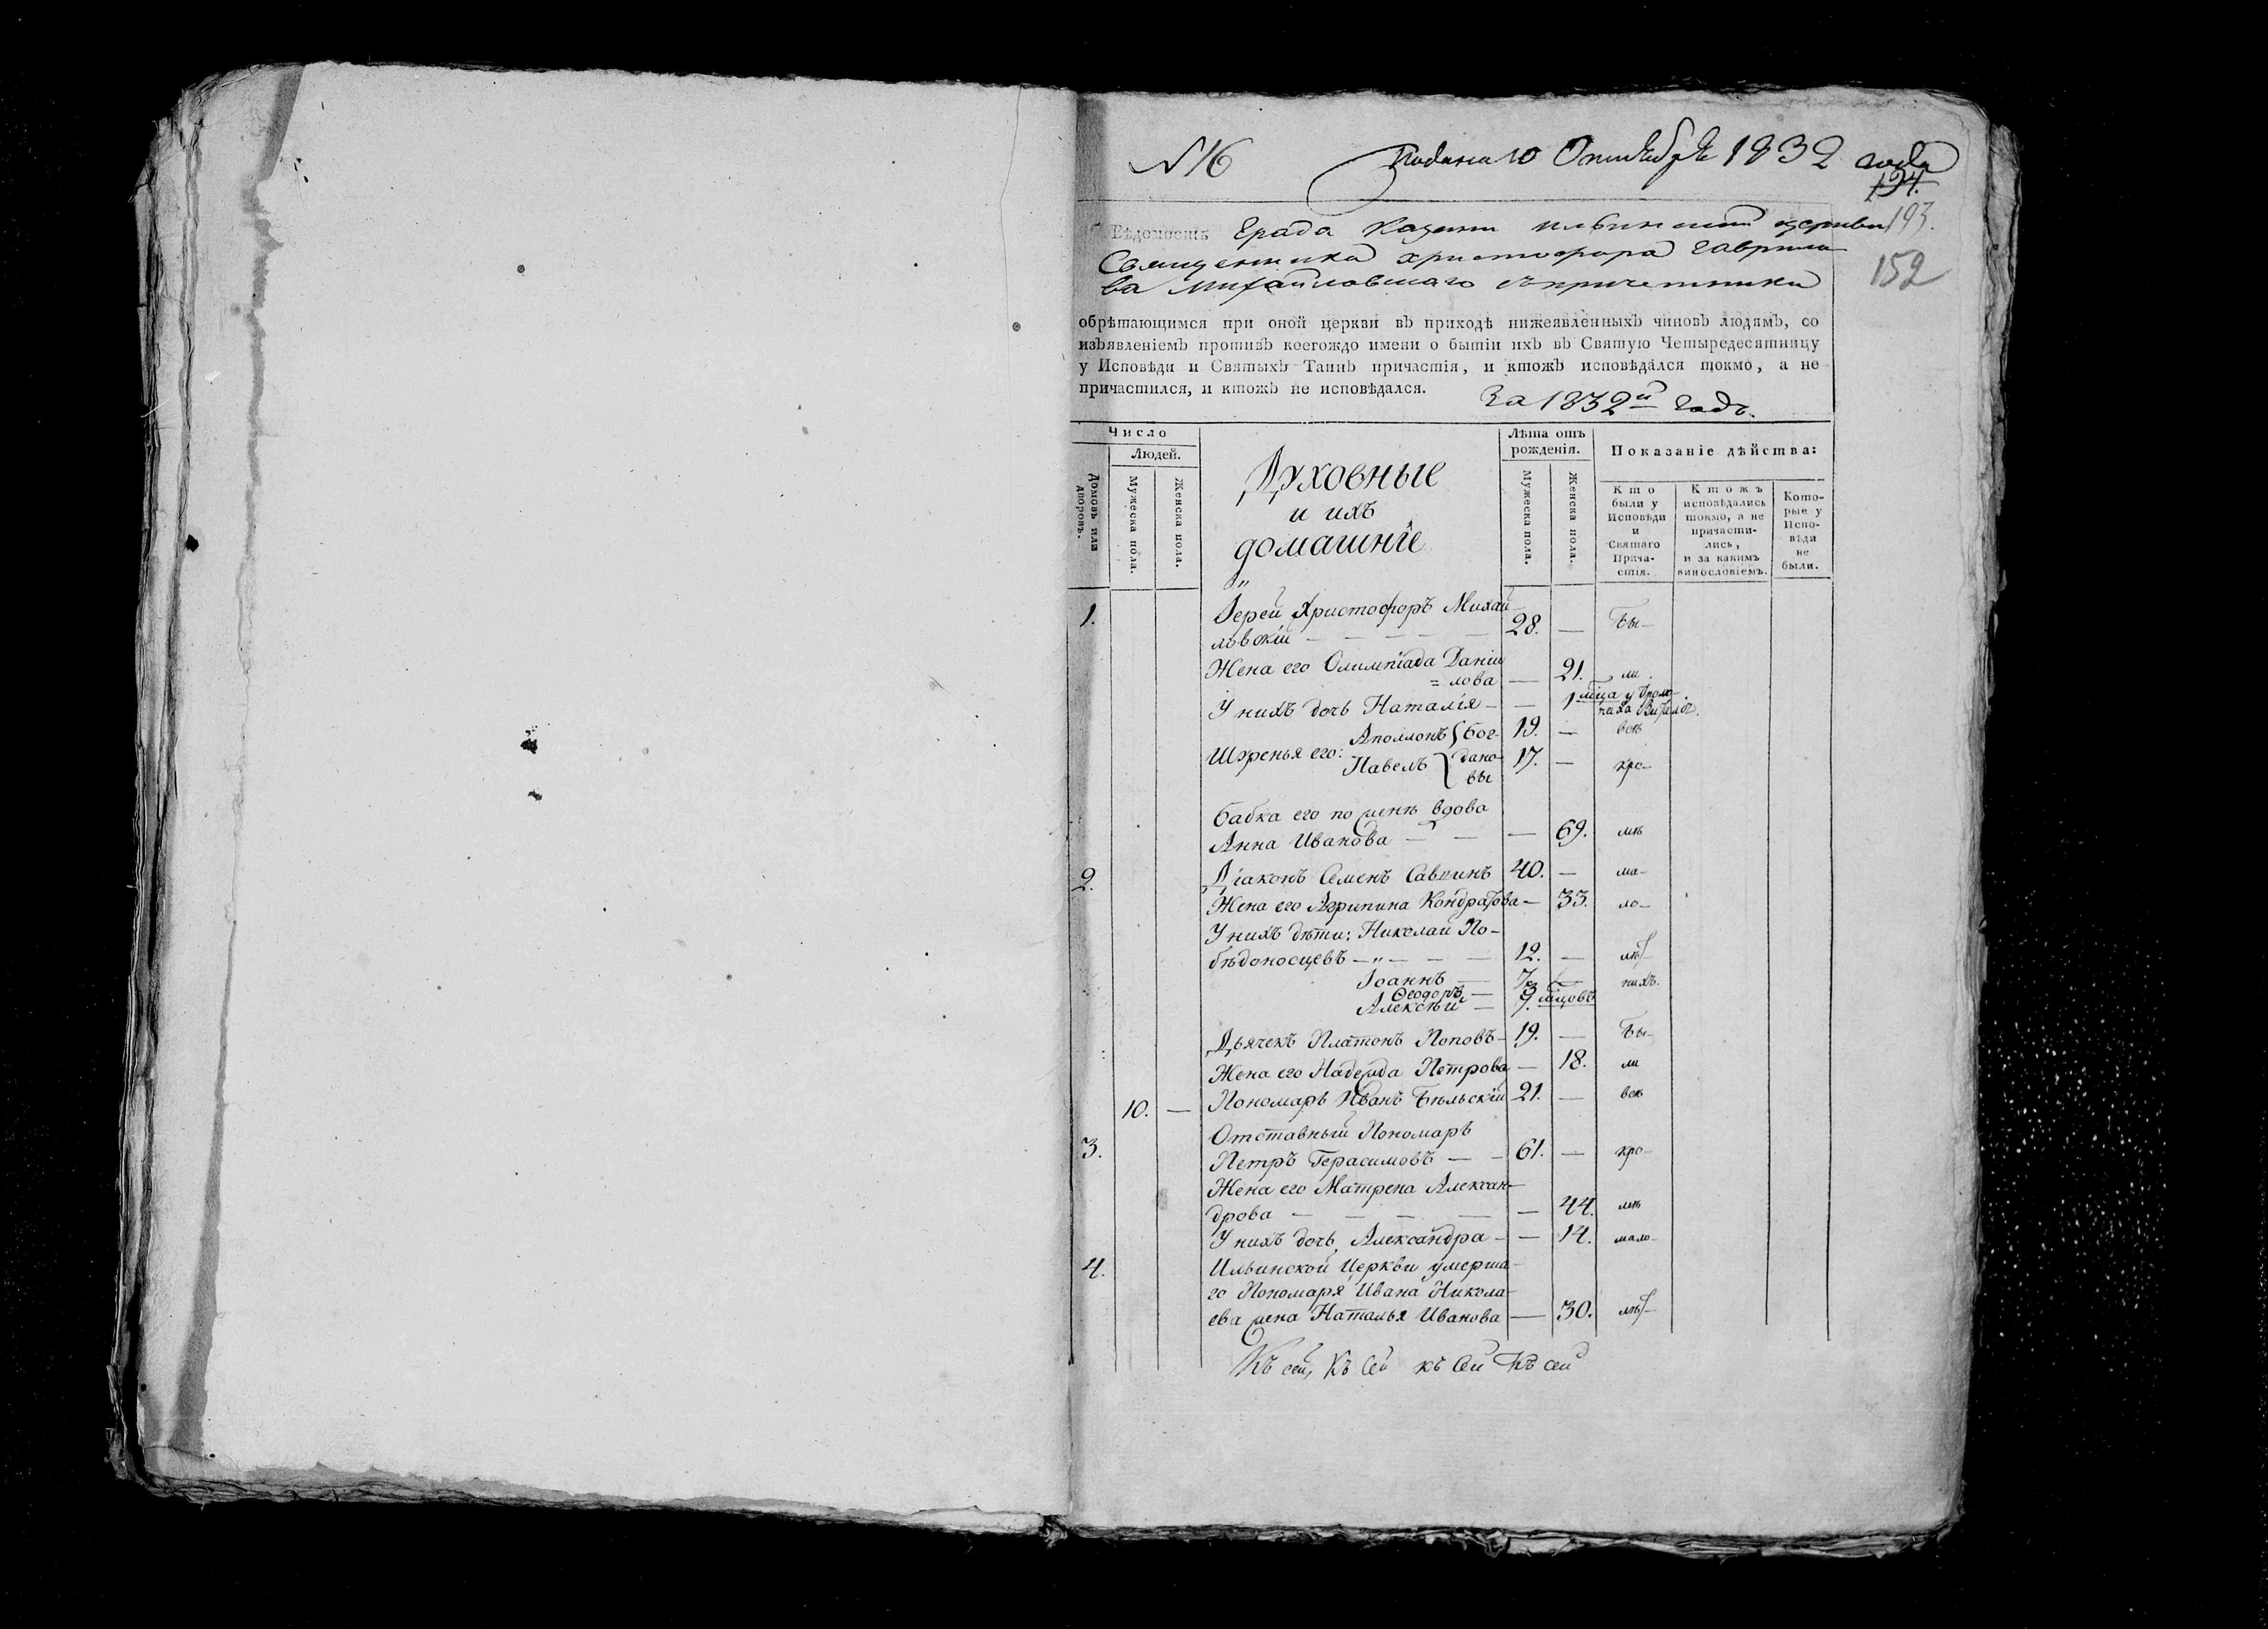 N 16 Подана 10 Октября 1832 года
194.
193.
152
Вѣдомость Града Казани ильинской церкви
Священника христофора гаврило
ва михайловскаго съ причетники
обрѣтающимся при оной церкви въ приходѣ нижеявленныхъ чиновъ людямъ, со
изъявленіемъ противъ коегождо имени о бытіи ихъ въ Святую Четыредесятницу
у Исповѣди и Святыхъ Таинъ причастія, и ктожъ исповѣдался токмо, а не
причастился, и ктожъ не исповѣдался.
За 1832й годъ.
Число
Людей.
Домовъ или дворовъ.
Мужеска пола.
Женска пола.
Духовные
и ихъ
домашніе
Лѣта отъ рожденія.
Мужеска пола.
Женска пола.
Показаніе дѣйства:
Кто были у Исповѣди и Святаго Прича-стія.
Ктожъ исповѣдались токмо, а не причасти-лись, и за какимъ винословіемъ.
Кото-рые у Испо-вѣди не были.
1. Іерей Христофоръ Михай
ловскій — 28. — Бы-
Жена его Олимпіада Даніи
=лова — 21. ли
У нихъ дочь Наталія — — 1 мца у
Аполлонъ Бог- 19. — всѣ
Шуренья его: Павелъ дано-вы 17. — хро-
бабка его по женѣ вдова
Анна Иванова — — 69. мѣ
2. Діаконъ Семенъ Саввинъ 40. — ма-
Жена его Агрипина Кондратова — 33. ло-
У нихъ дѣти: Николай По-
бѣдоносцевъ — 12. — лѣт-
Іоаннъ — 7. — нихъ.
Ѳеодоръ — 3
Алексѣй — 9. мцовъ
Дьячекъ Платонъ Поповъ — 19. — Бы-
Жена его Надежда Петрова — 18. ли
10. — Пономарь Иванъ Бѣльскій 21. — всѣ
3. Отставный Пономарь
Петръ Герасимовъ — 61. — хро-
Жена его Матрена Алексан-
дрова — — 44. мѣ
У нихъ дочь Александра — — 14. мало-
4. Ильинской Церкви умерша-
го Пономаря Ивана Никола-
ева жена Наталья Иванова — 30. лѣт-
Къ сей, Къ Сей къ Сей Къ сей